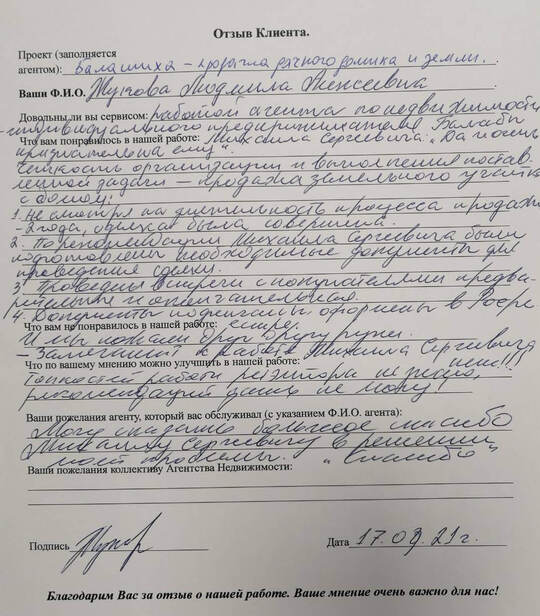 Отзыв Клиента.
Проект (заполняется
агентом): Балашиха – продажа дачного домика и земли.
Ваши Ф.И.О. Жукова Людмила Алексеевна
Довольны ли вы сервисом: работой агента по недвижимости
– индивидуального предпринимателя Балабы
Что вам понравилось в нашей работе: Михаила Сергеевича: "Да и очень
признательна ему".
Четкость организации и выполнения постав-
ленной задачи – продажа земельного участка
с домом:
1. Не смотря на длительность процесса продажи
– 2 года, сделка была совершена.
2. По рекомендации Михаила Сергеевича были
подготовлены необходимые документы для
проведения сделки.
3. Проведены встречи с покупателями предва-
рительная и окончательная.
4. Документы подписаны оформлены в Росре
Что вам не понравилось в нашей работе: естре.
И мы пожали друг другу руки.
– Замечаний к работе Михаила Сергеевича
Что по вашему мнению можно улучшить в нашей работе: нет!!!
Тонкостей работы риэлтора не знаю,
рекомендаций дать не могу.
Ваши пожелания агенту, который вас обслуживал (с указанием Ф.И.О. агента):
Могу сказать большое спасибо
Михаилу Сергеевичу в решении
моей проблемы. "Спасибо"
Ваши пожелания коллективу Агентства Недвижимости:
Подпись
Дата 17.09.21г.
Благодарим Вас за отзыв о нашей работе. Ваше мнение очень важно для нас!